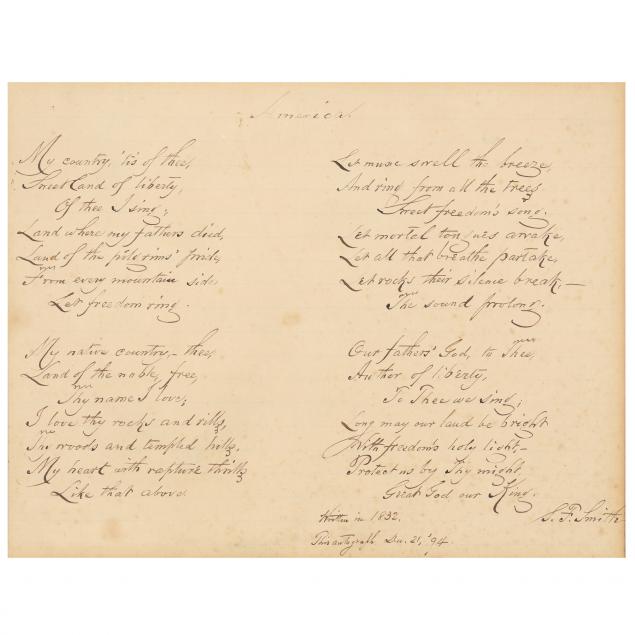 America.
My country, 'tis of thee,
Sweet land of liberty,
Of thee I sing;
Land where my fathers died,
Land of the pilgrims' pride,
From every mountain side
Let freedom ring.
My native country, – thee,
Land of the noble, free,
Thy name I love;
I love thy rocks and rills,
Thy woods and templed hills,
My heart with rapture thrills
Like that above.
Let music swell the breeze,
And ring from all the trees
Sweet freedom's song.
Let mortal tongues awake,
Let all that breathe partake,
Let rocks their silence break, –
The sound prolong.
Our fathers' God, to Thee,
Author of liberty,
To Thee we sing;
Long may our land be bright
With freedom's holy light, –
Protect us by Thy might,
Great God, our King.
Written in 1832.
S. F. Smith
This autograph Dec. 21, '94.